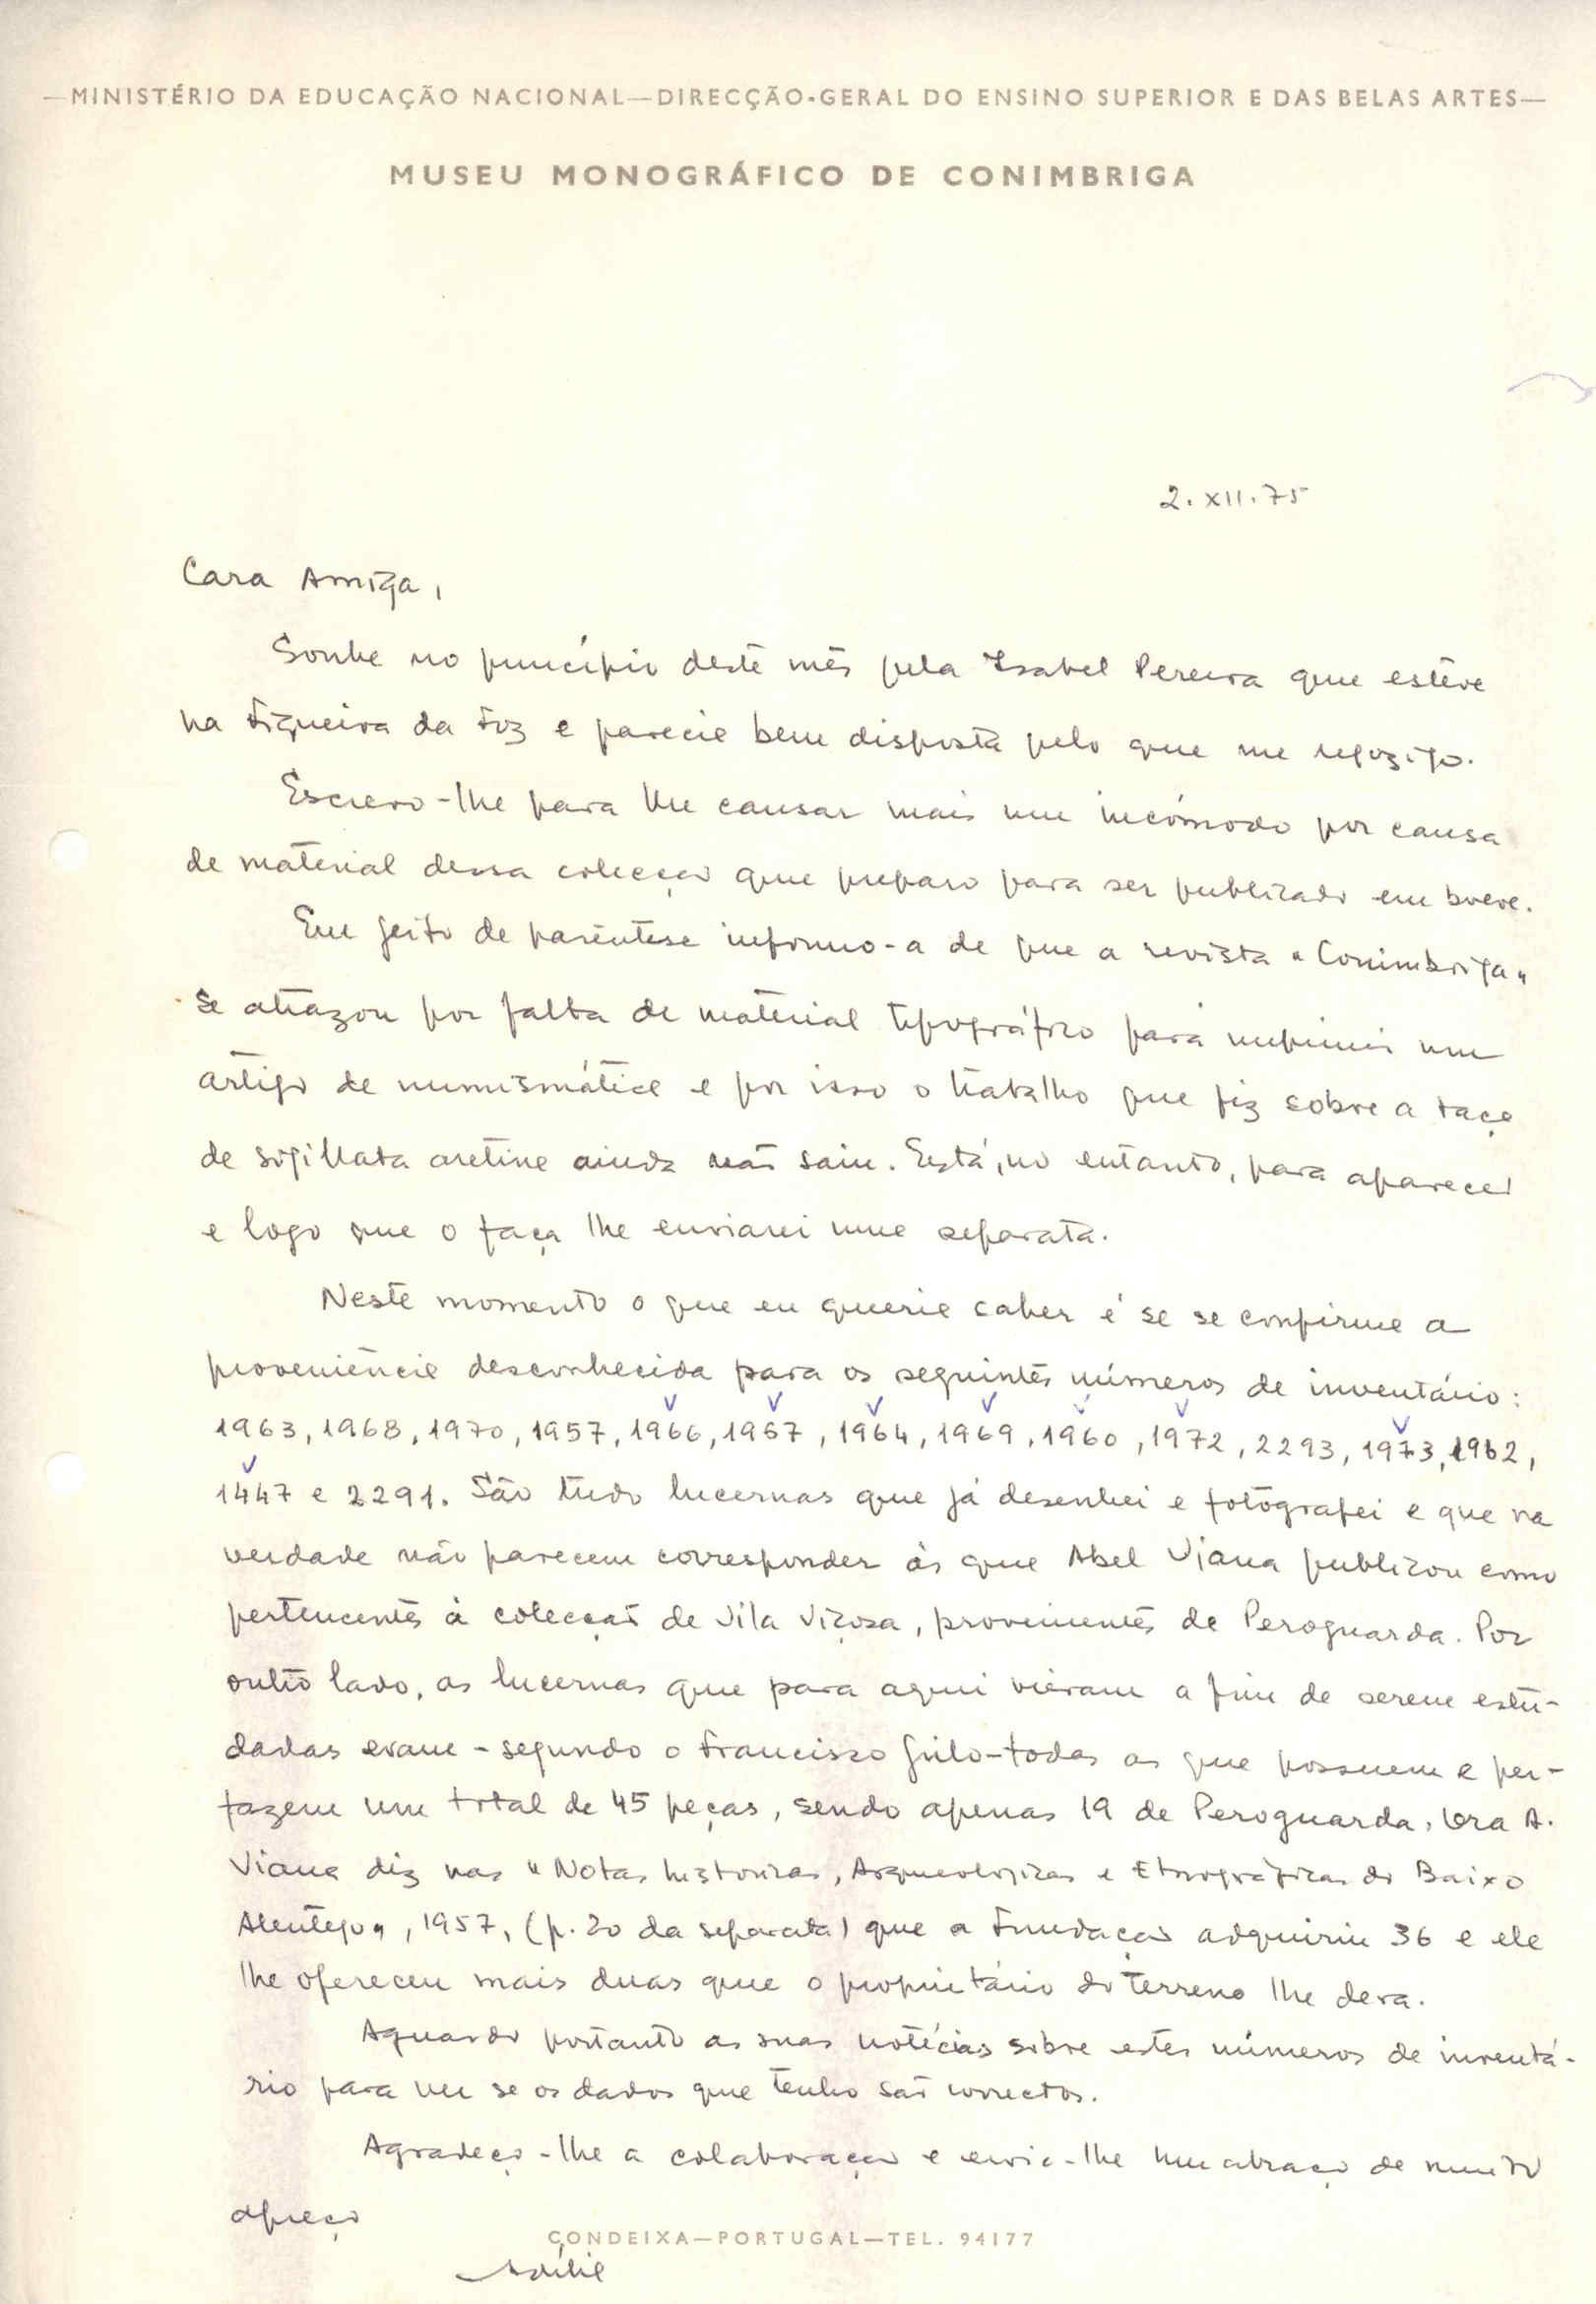 —MINISTÉRIO DA EDUCAÇÃO NACIONAL—DIRECÇÃO-GERAL DO ENSINO SUPERIOR E DAS BELAS ARTES—
MUSEU MONOGRÁFICO DE CONIMBRIGA
2.XII.75
Cara Amiga,
Soube no princípio deste mês pela Isabel Pereira que esteve
na Figueira da Foz e parecia bem disposta pelo que me regozijo.
Escrevo-lhe para lhe causar mais um incómodo por causa
de material dessa colecção que preparo para ser publicado em breve.
Em jeito de parêntese informo-a de que a revista "Conimbriga"
se atrazou por falta de material tipográfico para imprimir um
artigo de numismática e por isso o trabalho que fiz sobre a taça
de sigillata aretina ainda não saiu. Está, no entanto, para aparecer
e logo que o faça lhe enviarei uma separata.
Neste momento o que eu queria saber é se se confirma a
proveniência desconhecida para os seguintes números de inventário:
1963, 1968, 1970, 1957, 1966, 1967, 1964, 1969, 1960, 1972, 2293, 1973, 1962,
1447 e 2291. São tudo lucernas que já desenhei e fotografei e que na
verdade não parecem corresponder às que Abel Viana publicou como
pertencentes à colecção de Vila Viçosa, provenientes de Peroguarda. Por
outro lado, as lucernas que para aqui vieram a fim de serem estu-
dadas eram - segundo o Francisco Grilo - todas as que possuem e per-
fazem um total de 45 peças, sendo apenas 19 de Peroguarda. Ora A.
Viana diz nas "Notas históricas, Arqueológicas e Etnográficas do Baixo
Alentejo", 1957, (p. 20 da separata) que a Fundação adquiriu 36 e ele
lhe ofereceu mais duas que o proprietário do terreno lhe dera.
Aguardo portanto as suas notícias sobre estes números de inventá-
rio para ver se os dados que tenho são correctos.
Agradeço-lhe a colaboração e envio-lhe um abraço de muito
apreço
CONDEIXA—PORTUGAL—TEL. 94177
Adília